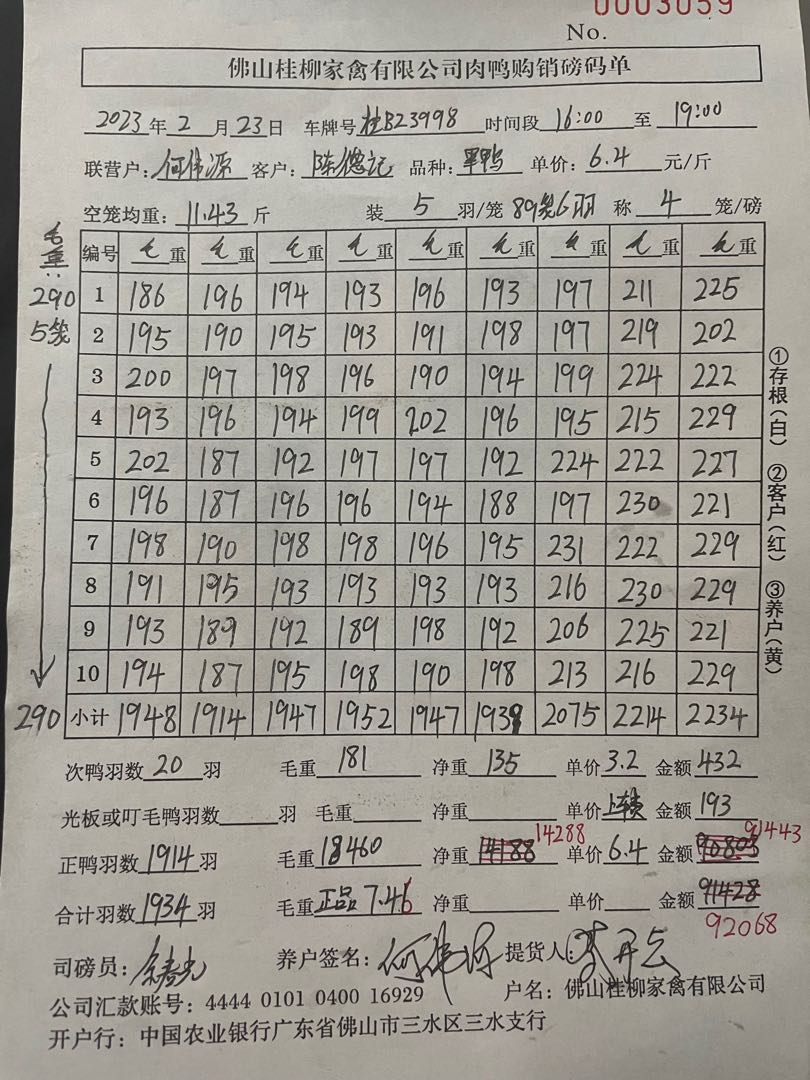 0003059
No.
佛山桂柳家禽有限公司肉鸭购销磅码单
2023年2月23日 车牌号 桂B23998 时间段 16:00 至 19:00
联营户:何伟源 客户:陈德记 品种:单鸭 单价:6.4 元/斤
空笼均重:11.43 斤 装 5 羽/笼 89笼6羽 称 4 笼/磅
毛重:
290
5笼
290
编号 毛重 毛重 毛重 毛重 毛重 毛重 毛重 毛重 毛重
1 186 196 194 193 196 193 197 211 225
2 195 190 195 193 191 198 197 219 202
3 200 197 198 196 190 194 199 224 222
4 193 196 194 199 202 196 195 215 229
5 202 187 192 197 197 192 224 222 227
6 196 187 196 196 194 188 197 230 221
7 198 190 198 198 196 195 231 222 229
8 191 195 193 193 193 193 216 230 229
9 193 189 192 189 198 192 206 225 221
10 194 187 195 198 190 198 213 216 229
小计 1948 1914 1947 1952 1947 1939 2075 2214 2234
次鸭羽数 20 羽 毛重 181 净重 135 单价 3.2 金额 432
光板或叮毛鸭羽数 羽 毛重 净重 单价 金额 193
正鸭羽数 1914 羽 毛重 18460 净重 14188 14288 单价 6.4 金额 90803 91443
合计羽数 1934 羽 毛重 正品 7.46 净重 单价 金额 91428
92068
司磅员: 养户签名:何伟源 提货人:
公司汇款账号:4444 0101 0400 16929 户名:佛山桂柳家禽有限公司
开户行:中国农业银行广东省佛山市三水区三水支行
①存根(白) ②客户(红) ③养户(黄)